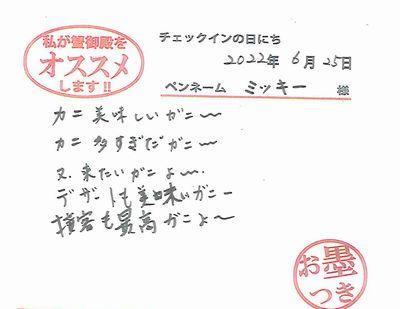 私が蟹御殿を
オススメ
します!!
チェックインの日にち
2022年 6月 25日
ペンネーム ミッキー 様
カニ美味しいガニ〜
カニ多すぎだガニ〜
又、来たいガニよ〜.
デザートも美味いガニー
接客も最高ガニよ〜
お墨
つき